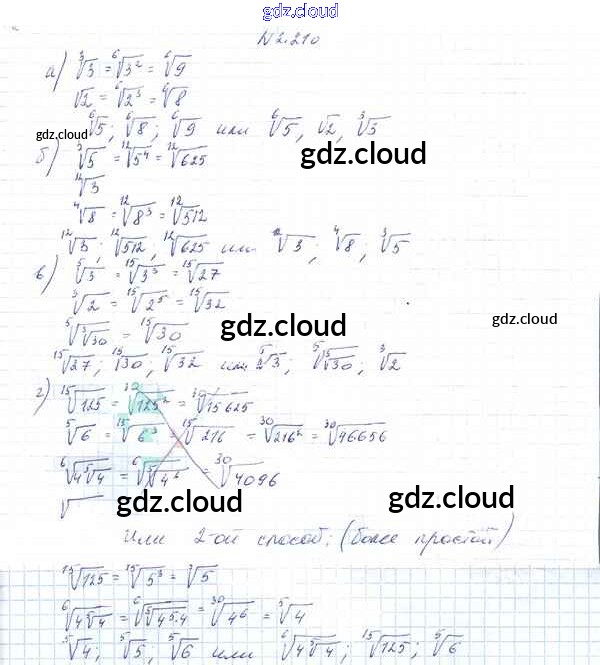 gdz.cloud
№2.210
а) ∛3 = ⁶√3² = ⁶√9
√2 = ⁶√2³ = ⁶√8
⁶√5; ⁶√8; ⁶√9 или ⁶√5, √2, ∛3
gdz.cloud
gdz.cloud
б) ∛5 = ¹²√5⁴ = ¹²√625
¹²√3
⁴√8 = ¹²√8³ = ¹²√512
¹²√3; ¹²√512, ¹²√625 или ¹²√3; ⁴√8; ∛5
в) ⁵√3 = ¹⁵√3³ = ¹⁵√27
∛2 = ¹⁵√2⁵ = ¹⁵√32
gdz.cloud
gdz.cloud
⁵√∛30 = ¹⁵√30
¹⁵√27; ¹⁵√30; ¹⁵√32 или ⁵√3; ⁵√∛30; ∛2
г) ¹⁵√125 = ³⁰√125² = ³⁰√15625
⁵√6 = ¹⁵√6³ = ¹⁵√216 = ³⁰√216² = ³⁰√46656
⁶√4⁵√4 = ⁶√⁵√4⁶ = ³⁰√4096
√
gdz.cloud
gdz.cloud
Или 2-ой способ: (более простой)
¹⁵√125 = ¹⁵√5³ = ⁵√5
⁶√4⁵√4 = ⁶√⁵√4⁵·4 = ³⁰√4⁶ = ⁵√4
gdz.cloud
⁵√4; ⁵√5; ⁵√6 или ⁶√4⁵√4; ¹⁵√125; ⁵√6